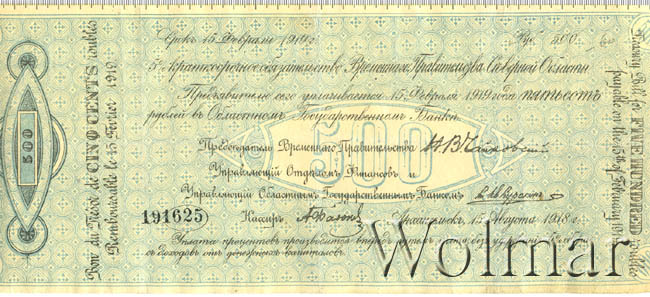 Срокъ 15 Февраля 1919 г. Руб. 500.
5% краткосрочное обязательство Временнаго Правительства Сѣверной Области
Предъявителю сего уплачивается 15 Февраля 1919 года пятьсотъ
рублей въ Областномъ Государственномъ Банкѣ.
500
Предсѣдатель Временнаго Правительства Н. В. Чайковскій
Управляющій Отдѣломъ Финансовъ и
Управляющій Областнымъ Государственнымъ Банкомъ
191625 Кассиръ Архангельскъ, 15 Августа 1918 г.
Уплата процентовъ производится впередъ
съ доходовъ отъ денежныхъ капиталовъ.
Bon du Trésor de CINQ CENTS roubles
Remboursable le 15 Février 1919
500
Treasury Bill for FIVE HUNDRED roubles
payable on the 15th of February 1919
Wolmar